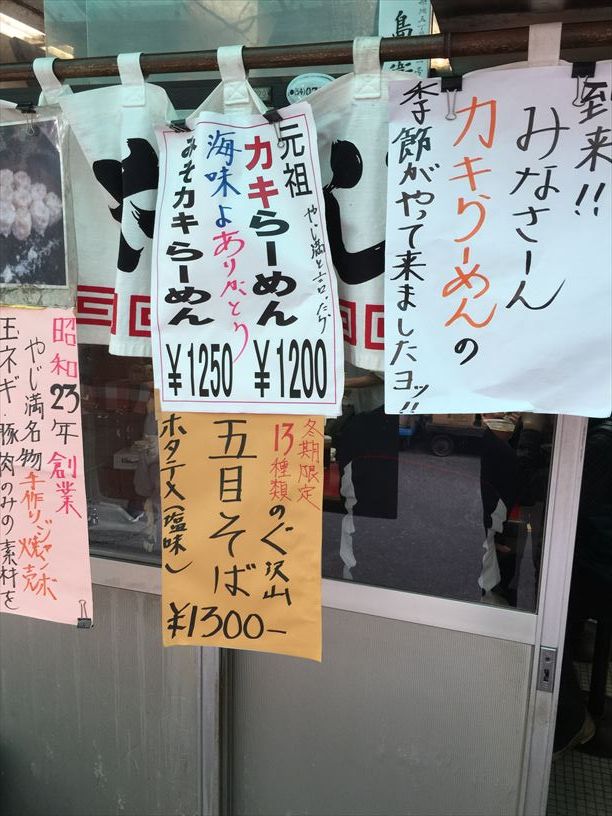 到来!!
みなさーん
カキらーめんの
季節がやって来ましたヨッ!!
元祖
カキらーめん
¥1200
海味よありがとう
みそカキらーめん
¥1250
冬期限定
13種類のぐ沢山
五目そば
ホタテ〆(塩味)
¥1300-
昭和23年創業
やじ満名物手作りジャンボ焼売
玉ネギ・豚肉のみの素材を